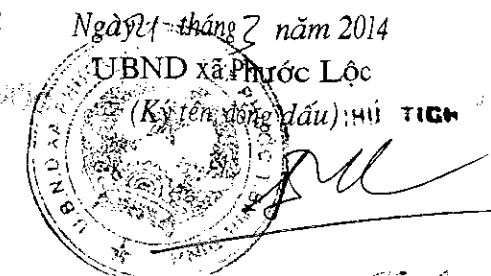 Ngày 21 tháng 7 năm 2014
UBND xã Phước Lộc
(Ký tên, đóng dấu) HỦ TỊCH
U B N D XÃ PHƯ